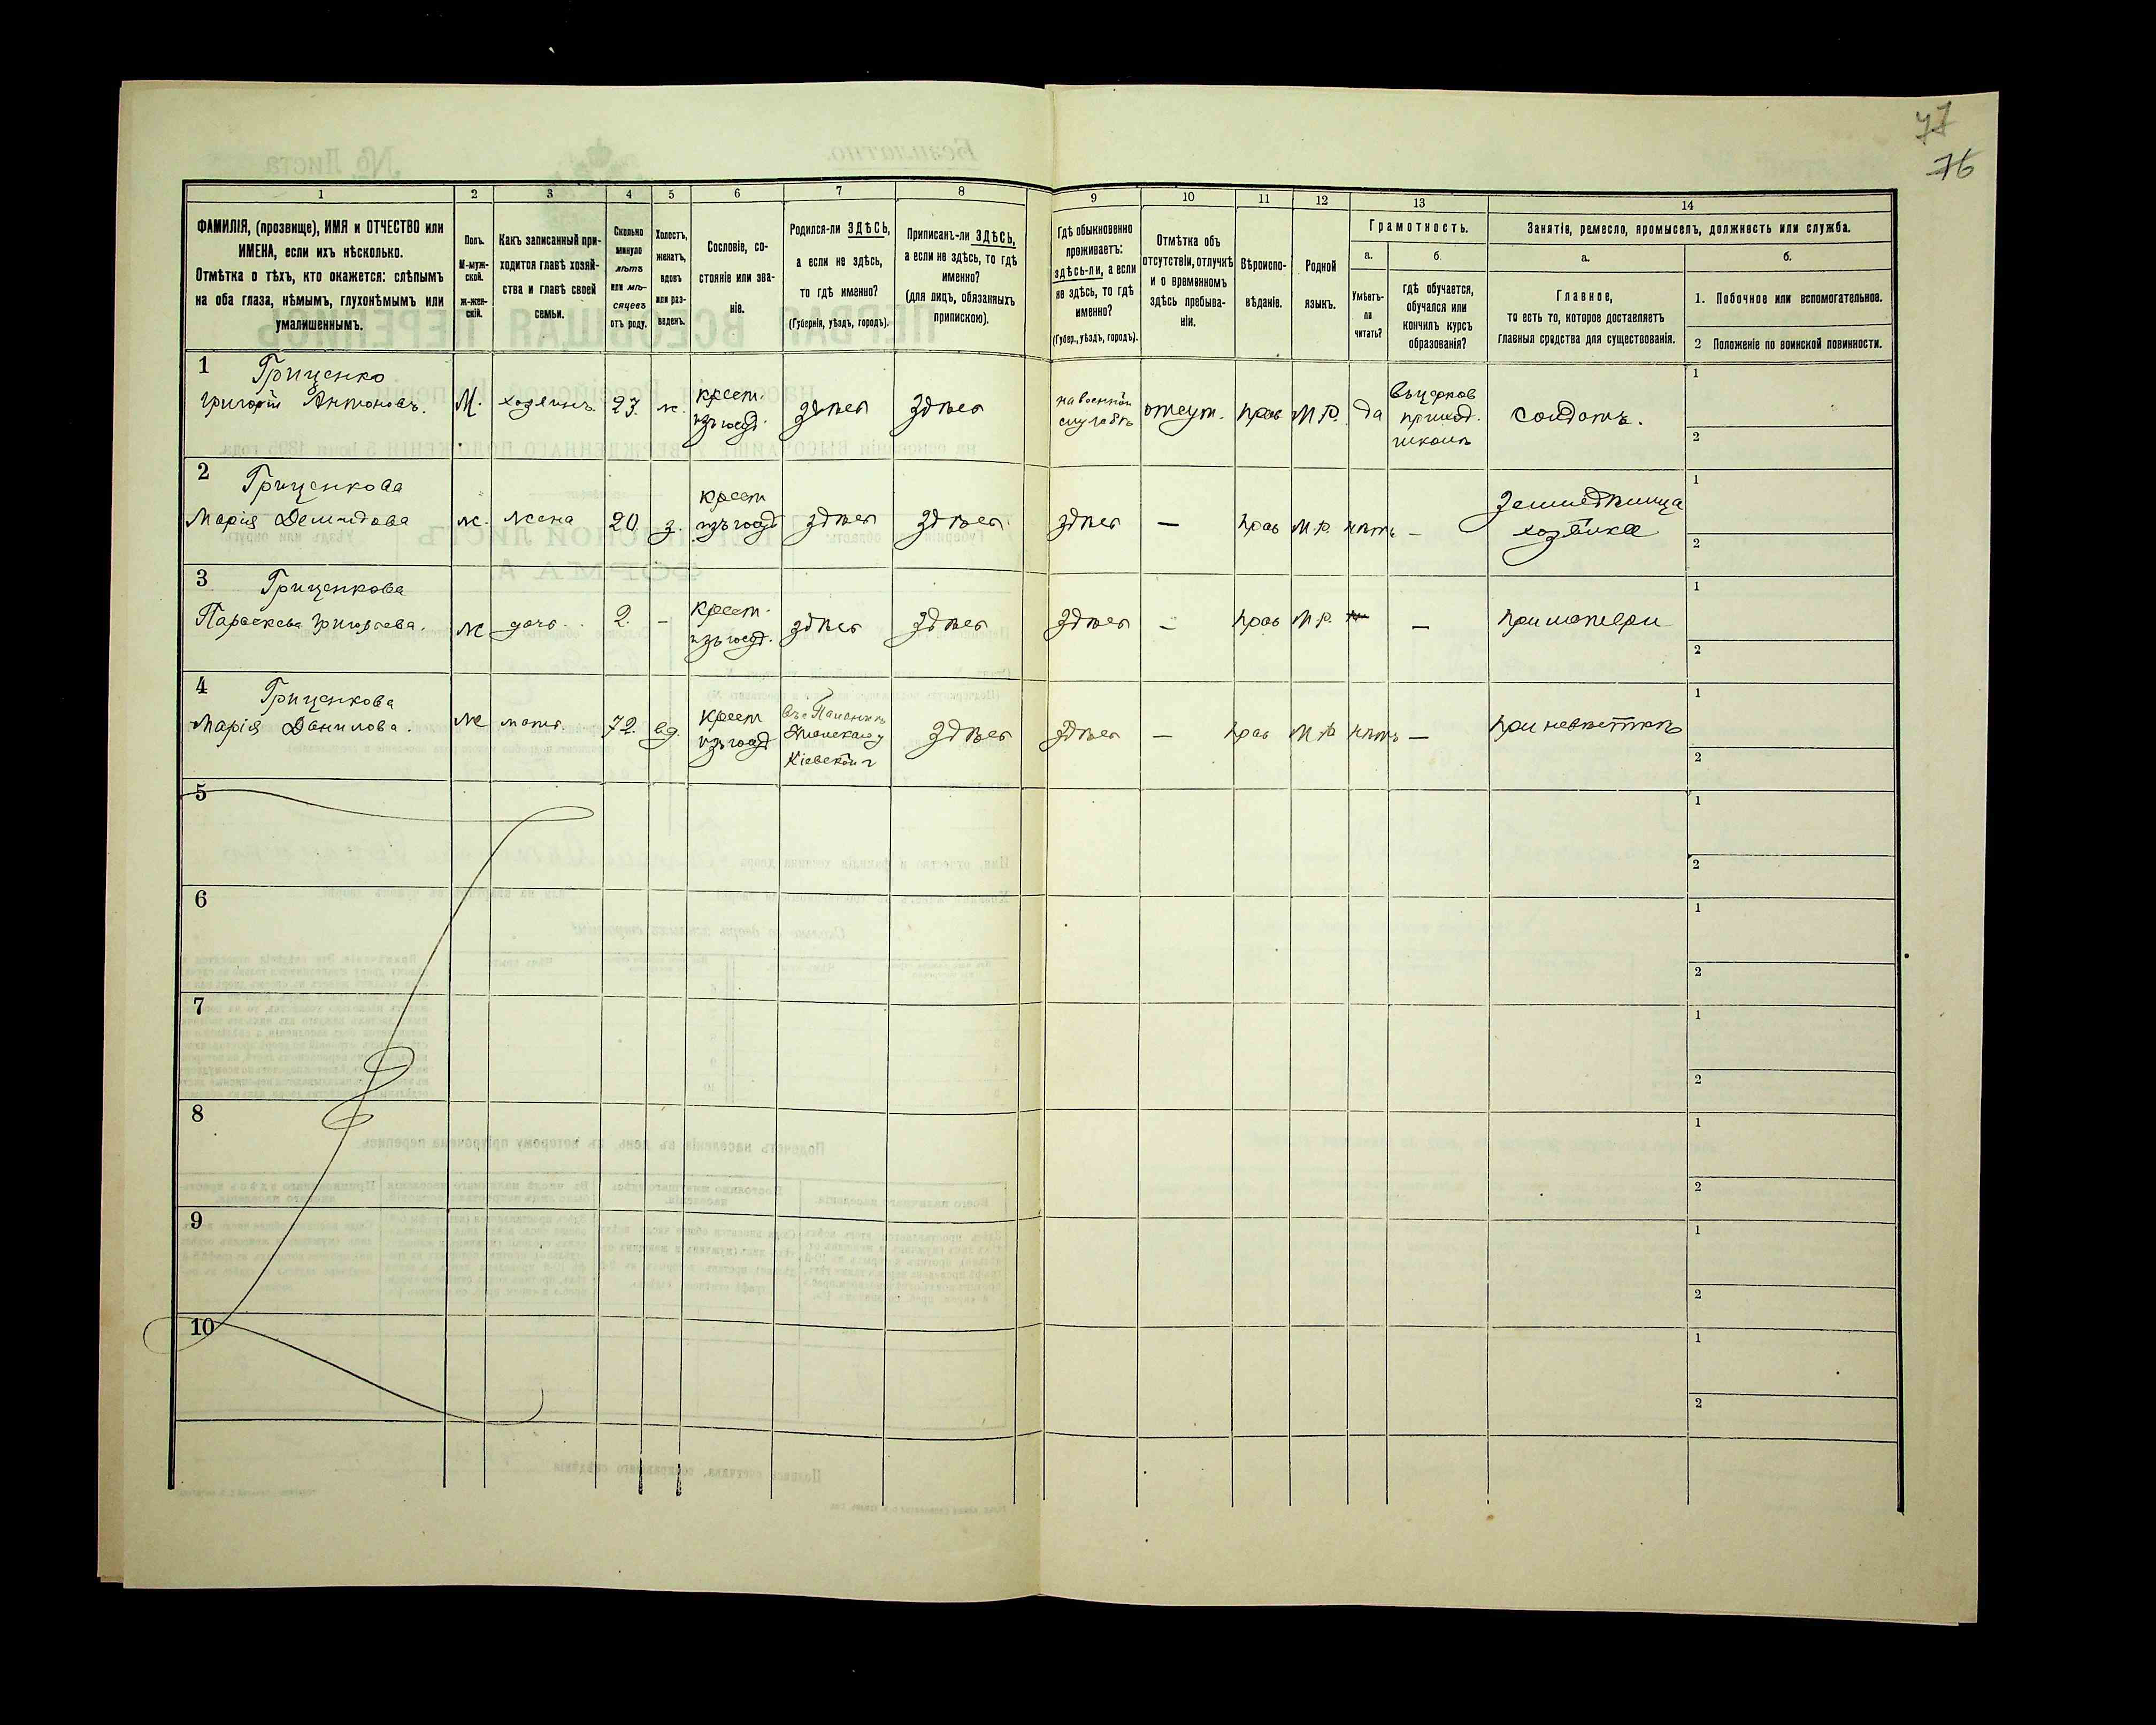 77
76
1
2
3
4
5
6
7
8
9
10
11
12
13
14
ФАМИЛІЯ, (прозвище), ИМЯ и ОТЧЕСТВО или
ИМЕНА, если ихъ нѣсколько.
Отмѣтка о тѣхъ, кто окажется: слѣпымъ
на оба глаза, нѣмымъ, глухонѣмымъ или
умалишеннымъ.
Полъ.
М-муж-
ской.
ж-жен-
скій.
Какъ записанный при-
ходится главѣ хозяй-
ства и главѣ своей
семьи.
Сколько
минуло
лѣтъ
или мѣ-
сяцевъ
отъ роду.
Холостъ,
женатъ,
вдовъ
или раз-
веденъ.
Сословіе, со-
стояніе или зва-
ніе.
Родился-ли ЗДѢСЬ,
а если не здѣсь,
то гдѣ именно?
(Губернія, уѣздъ, городъ).
Приписанъ-ли ЗДѢСЬ,
а если не здѣсь, то гдѣ
именно?
(для лицъ, обязанныхъ
припискою).
Гдѣ обыкновенно
проживаетъ:
здѣсь-ли, а если
не здѣсь, то гдѣ
именно?
(Губер., уѣздъ, городъ).
Отмѣтка объ
отсутствіи, отлучкѣ
и о временномъ
здѣсь пребыва-
ніи.
Вѣроиспо-
вѣданіе.
Родной
языкъ.
Грамотность.
а.
Умѣетъ-
ли
читать?
б.
гдѣ обучается,
обучался или
кончилъ курсъ
образованія?
Занятіе, ремесло, промыселъ, должность или служба.
а.
Главное,
то есть то, которое доставляетъ
главныя средства для существованія.
б.
1. Побочное или вспомогательное.
2 Положеніе по воинской повинности.
1 Гриценко
Григорій Антоновъ.
М.
хозяинъ
23.
ж.
крест.
изъ госуд.
здѣсь
здѣсь
на военной
службѣ
отсут.
прав
М Р.
да
въ церков
приход.
школѣ
солдатъ.
1
2
2 Гриценкова
Марія Демидова
ж.
жена
20.
з.
крест
изъ госуд
здѣсь
здѣсь
здѣсь
—
прав
М Р.
нѣтъ
—
хозяйка
1
2
3 Гриценкова
Параскева Григорьева.
ж
дочь.
2.
–
крест.
изъ госуд.
здѣсь
здѣсь
здѣсь
–
прав
М Р.
—
при матери
1
2
4 Гриценкова
Марія Данилова.
ж
мать
72.
вд.
крест
изъ госуд
Кіевской г
здѣсь
здѣсь
—
прав
М Р
нѣтъ
—
при невѣсткѣ
1
2
5
1
2
6
1
2
7
1
2
8
1
2
9
1
2
10
1
2